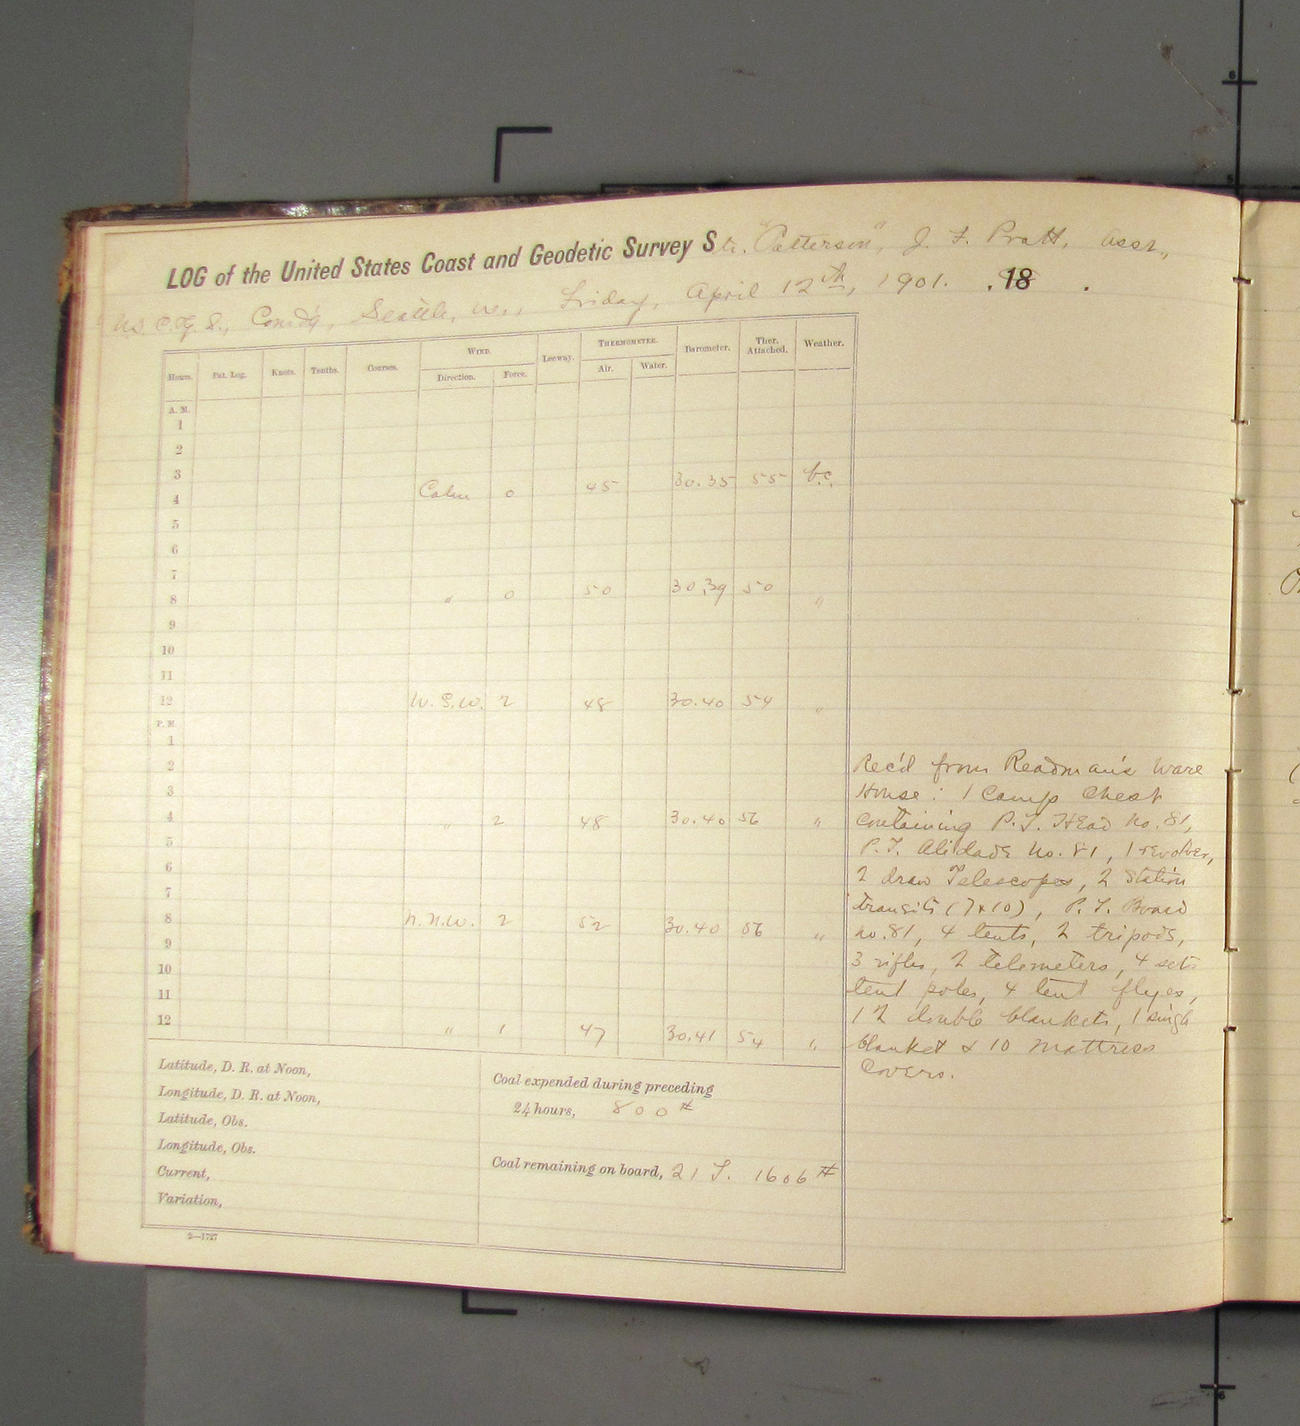 LOG of the United States Coast and Geodetic Survey Str. "Patterson", J. F. Pratt, Asst.,
U.S. C. & G. S., Comd'g, Seattle, Wn., Friday, April 12th, 1901. , 18 .
Hours. Pat. Log. Knots. Tenths. Courses. WIND. Direction. Force. Leeway. THERMOMETER. Air. Water. Barometer. Ther. Attached. Weather.
A. M.
1
2
3
4 Calm 0 45 30.35 55 b.c.
5
6
7
8 " 0 50 30.39 50 "
9
10
11
12 W.S.W. 2 48 30.40 54 "
P. M.
1
2
3
4 " 2 48 30.40 56 "
5
6
7
8 N.N.W. 2 52 30.40 56 "
9
10
11
12 " 1 47 30.41 54 "
Rec'd from Readman's Ware
House: 1 Camp Chest
containing P.T. Head No. 81,
P.T. Alidade No. 81, 1 revolver,
2 draw Telescopes, 2 Station
transits (7x10), P.T. Board
No. 81, 4 tents, 2 tripods,
3 rifles, 2 telemeters, 4 sets
tent poles, 4 tent flyes,
12 double blankets, 1 single
blanket & 10 Mattress
Covers.
Latitude, D. R. at Noon,
Longitude, D. R. at Noon,
Latitude, Obs.
Longitude, Obs.
Current,
Variation,
Coal expended during preceding
24 hours, 800#
Coal remaining on board, 21 T. 1606#
2—1727